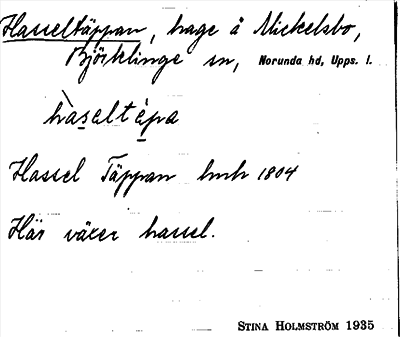 Hasseltäppan, hage å Mickelsbo,
Björklinge sn, Norunda hd, Upps. l.
hàsaltépa
Hassel Täppan lmh 1804
Här växer hassel.
STINA HOLMSTRÖM 1935